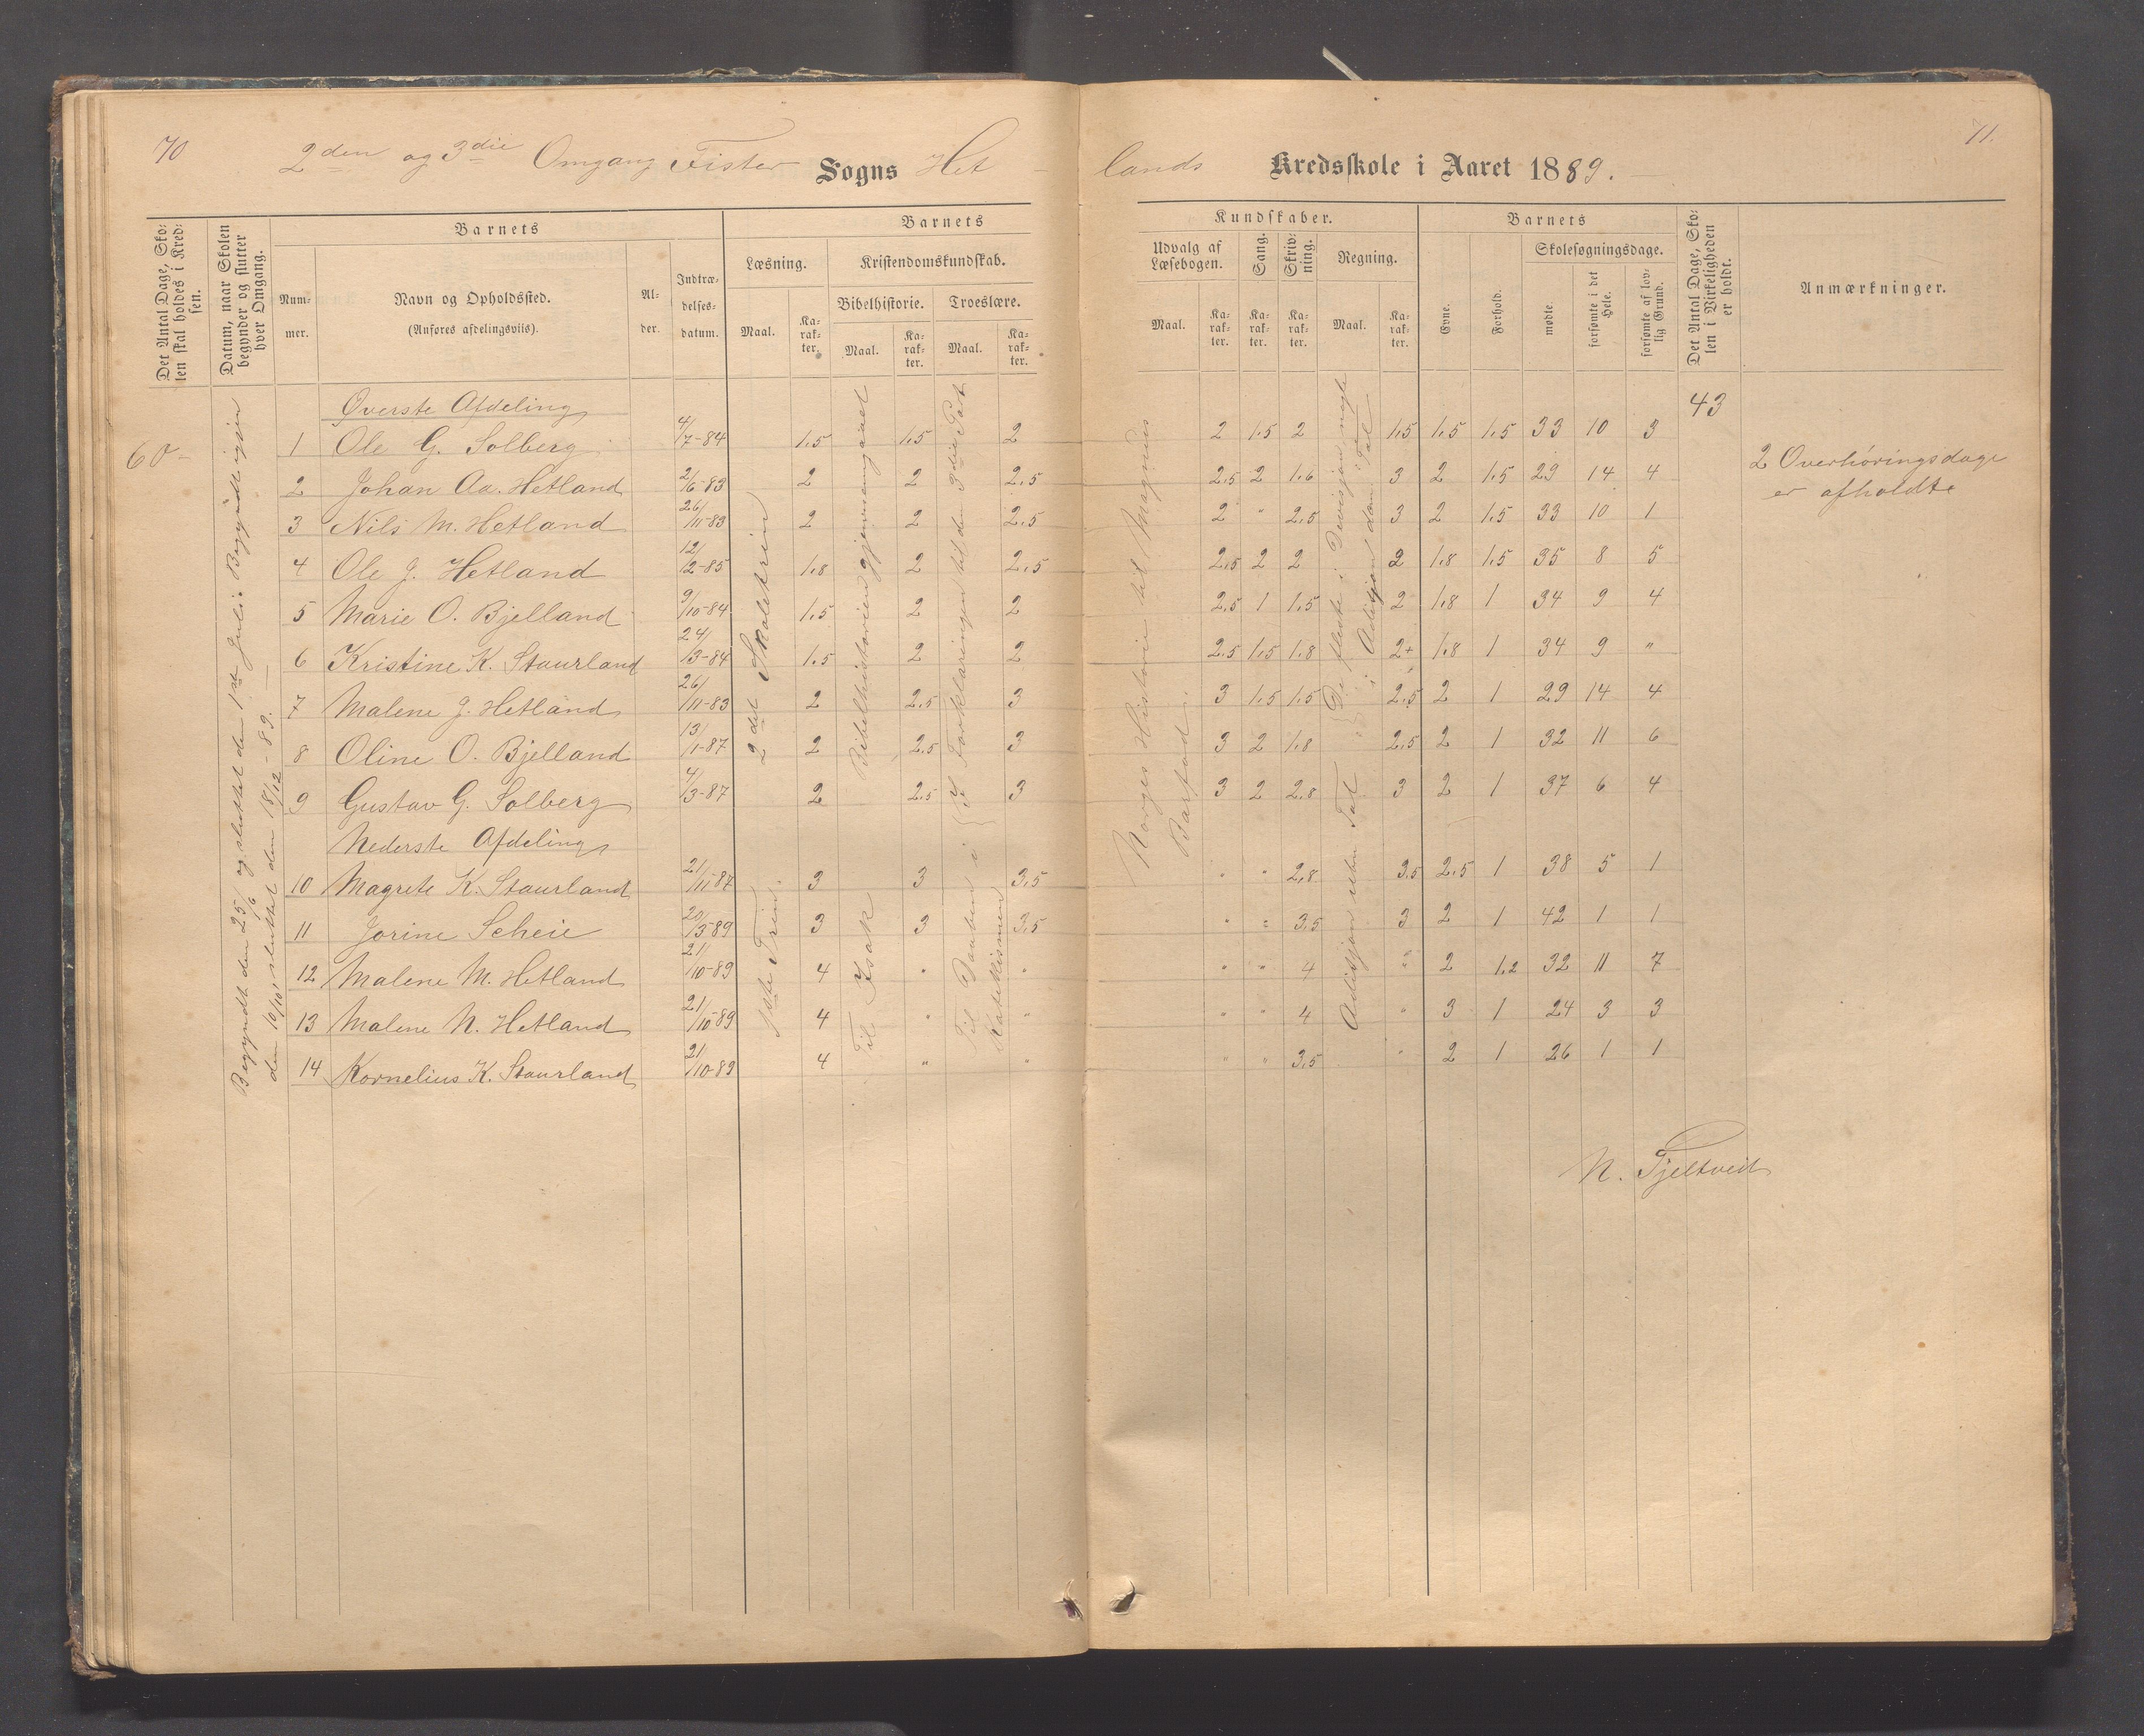 70
2den og 3die Omgang Fister Sogns Het
lands Kredsskole i Aaret 1889.
71.
Det Antal Dage, Sko-
len skal holdes i Kred-
sen.
Datum, naar Skolen
begynder og slutter
hver Omgang.
Barnets
Num-
mer.
Navn og Opholdssted.
(Anføres afdelingsviis).
Al-
der.
Indtræ-
delses-
datum.
Barnets
Læsning.
Maal.
Ka-
rak-
ter.
Kristendomskundskab.
Bibelhistorie.
Maal.
Ka-
rak-
ter.
Troeslære.
Maal.
Ka-
rak-
ter.
Kundskaber.
Udvalg af
Læsebogen.
Maal.
Ka-
rak-
ter.
Sang.
Ka-
rak-
ter.
Skriv-
ning.
Ka-
rak-
ter.
Regning.
Maal.
Ka-
rak-
ter.
Barnets
Evne.
Forhold.
Skolesøgningsdage.
mødte
forsømte i det
Hele.
forsømte af lov-
lig Grund.
Det Antal Dage, Sko-
len i Virkeligheden
er holdt.
Anmærkninger.
60
Begyndt den 25/6 og sluttet den 1ste Juli. Begyndt igjen
den 10/10, sluttet den 18/12 - 89.
2det Skoletrin
1ste Trin.
Bibelhistorien gjennemgaaet
Til Isak
I Forklaringen til den 3die Part
Til Daaben i
Katekismen
Norges Historie til Magnus
Barfod.
De fleste i Divisjon nogle
i Adisjon
Adisjon uben Tal
43
Øverste Afdeling
1 Ole G. Solberg 4/7-84 1.5 1.5 2 2 1.5 2 1.5 1.5 1.5 33 10 3
2 Johan Aa. Hetland 2/6-83 2 2 2.5 2.5 2 1.6 3 2 1.5 29 14 4
3 Nils M. Hetland 26/11-83 2 2 2.5 2 " 2.5 3 2 1.5 33 10 1
4 Ole J. Hetland 12/2-85 1.8 2 2.5 2.5 2 2 2 1.8 1.5 35 8 5
5 Marie O. Bjelland 9/10-84 1.5 2 2 2.5 1 1.5 2 1.8 1 34 9 4
6 Kristine K. Staurland 24/3-84 1.5 2 2 2.5 1.5 1.8 2+ 1.8 1 34 9 "
7 Malene J. Hetland 26/11-83 2 2.5 3 3 1.5 1.5 2.5 2 1 29 14 4
8 Oline O. Bjelland 13/1-87 2 2.5 3 3 2 1.8 2.5 2 1 32 11 6
9 Gustav G. Solberg 4/3-87 2 2.5 3 3 2 2.8 3 2 1 37 6 4
Nederste Afdeling
10 Magrete K. Staurland 21/11-87 3 3 3.5 " " 2.8 3.5 2.5 1 38 5 1
11 Jorine Scheie 20/3-89 3 3 3.5 " " 3.5 3 2 1 42 1 1
12 Malene M. Hetland 21/10-89 4 " " " " 4 " 2 1.2 32 11 7
13 Malene N. Hetland 21/10-89 4 " " " " 4 " 3 1 24 3 3
14 Kornelius K. Staurland 21/10-89 4 " " " " 3.5 " 2 1 26 1 1
2 Overhøringsdage
er afholdte
N. Fjeltveit